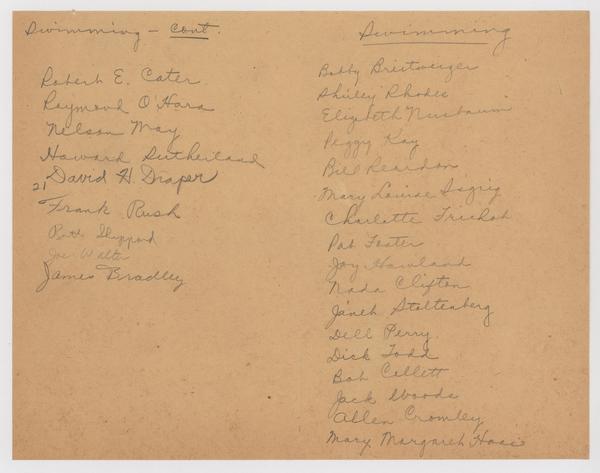 Swimming - Cont.
Robert E. Cater
Raymond O'Hara
Nelson May
Howard Sutherland
21 David H. Draper
Frank Rush
Sheppard
Joe Walter
James Bradley
Swimming
Bobby Breitweiger
Shirley Rhodes
Elizabeth Nusbaum
Peggy Kay
Bill Reardon
Mary Louise
Charlotte
Pat Foster
Joy Howland
Nada Clifton
Janet Stoltenberg
Dell Perry
Dick Todd
Bob Collett
Jack Woods
Allen Cromley
Mary Margaret